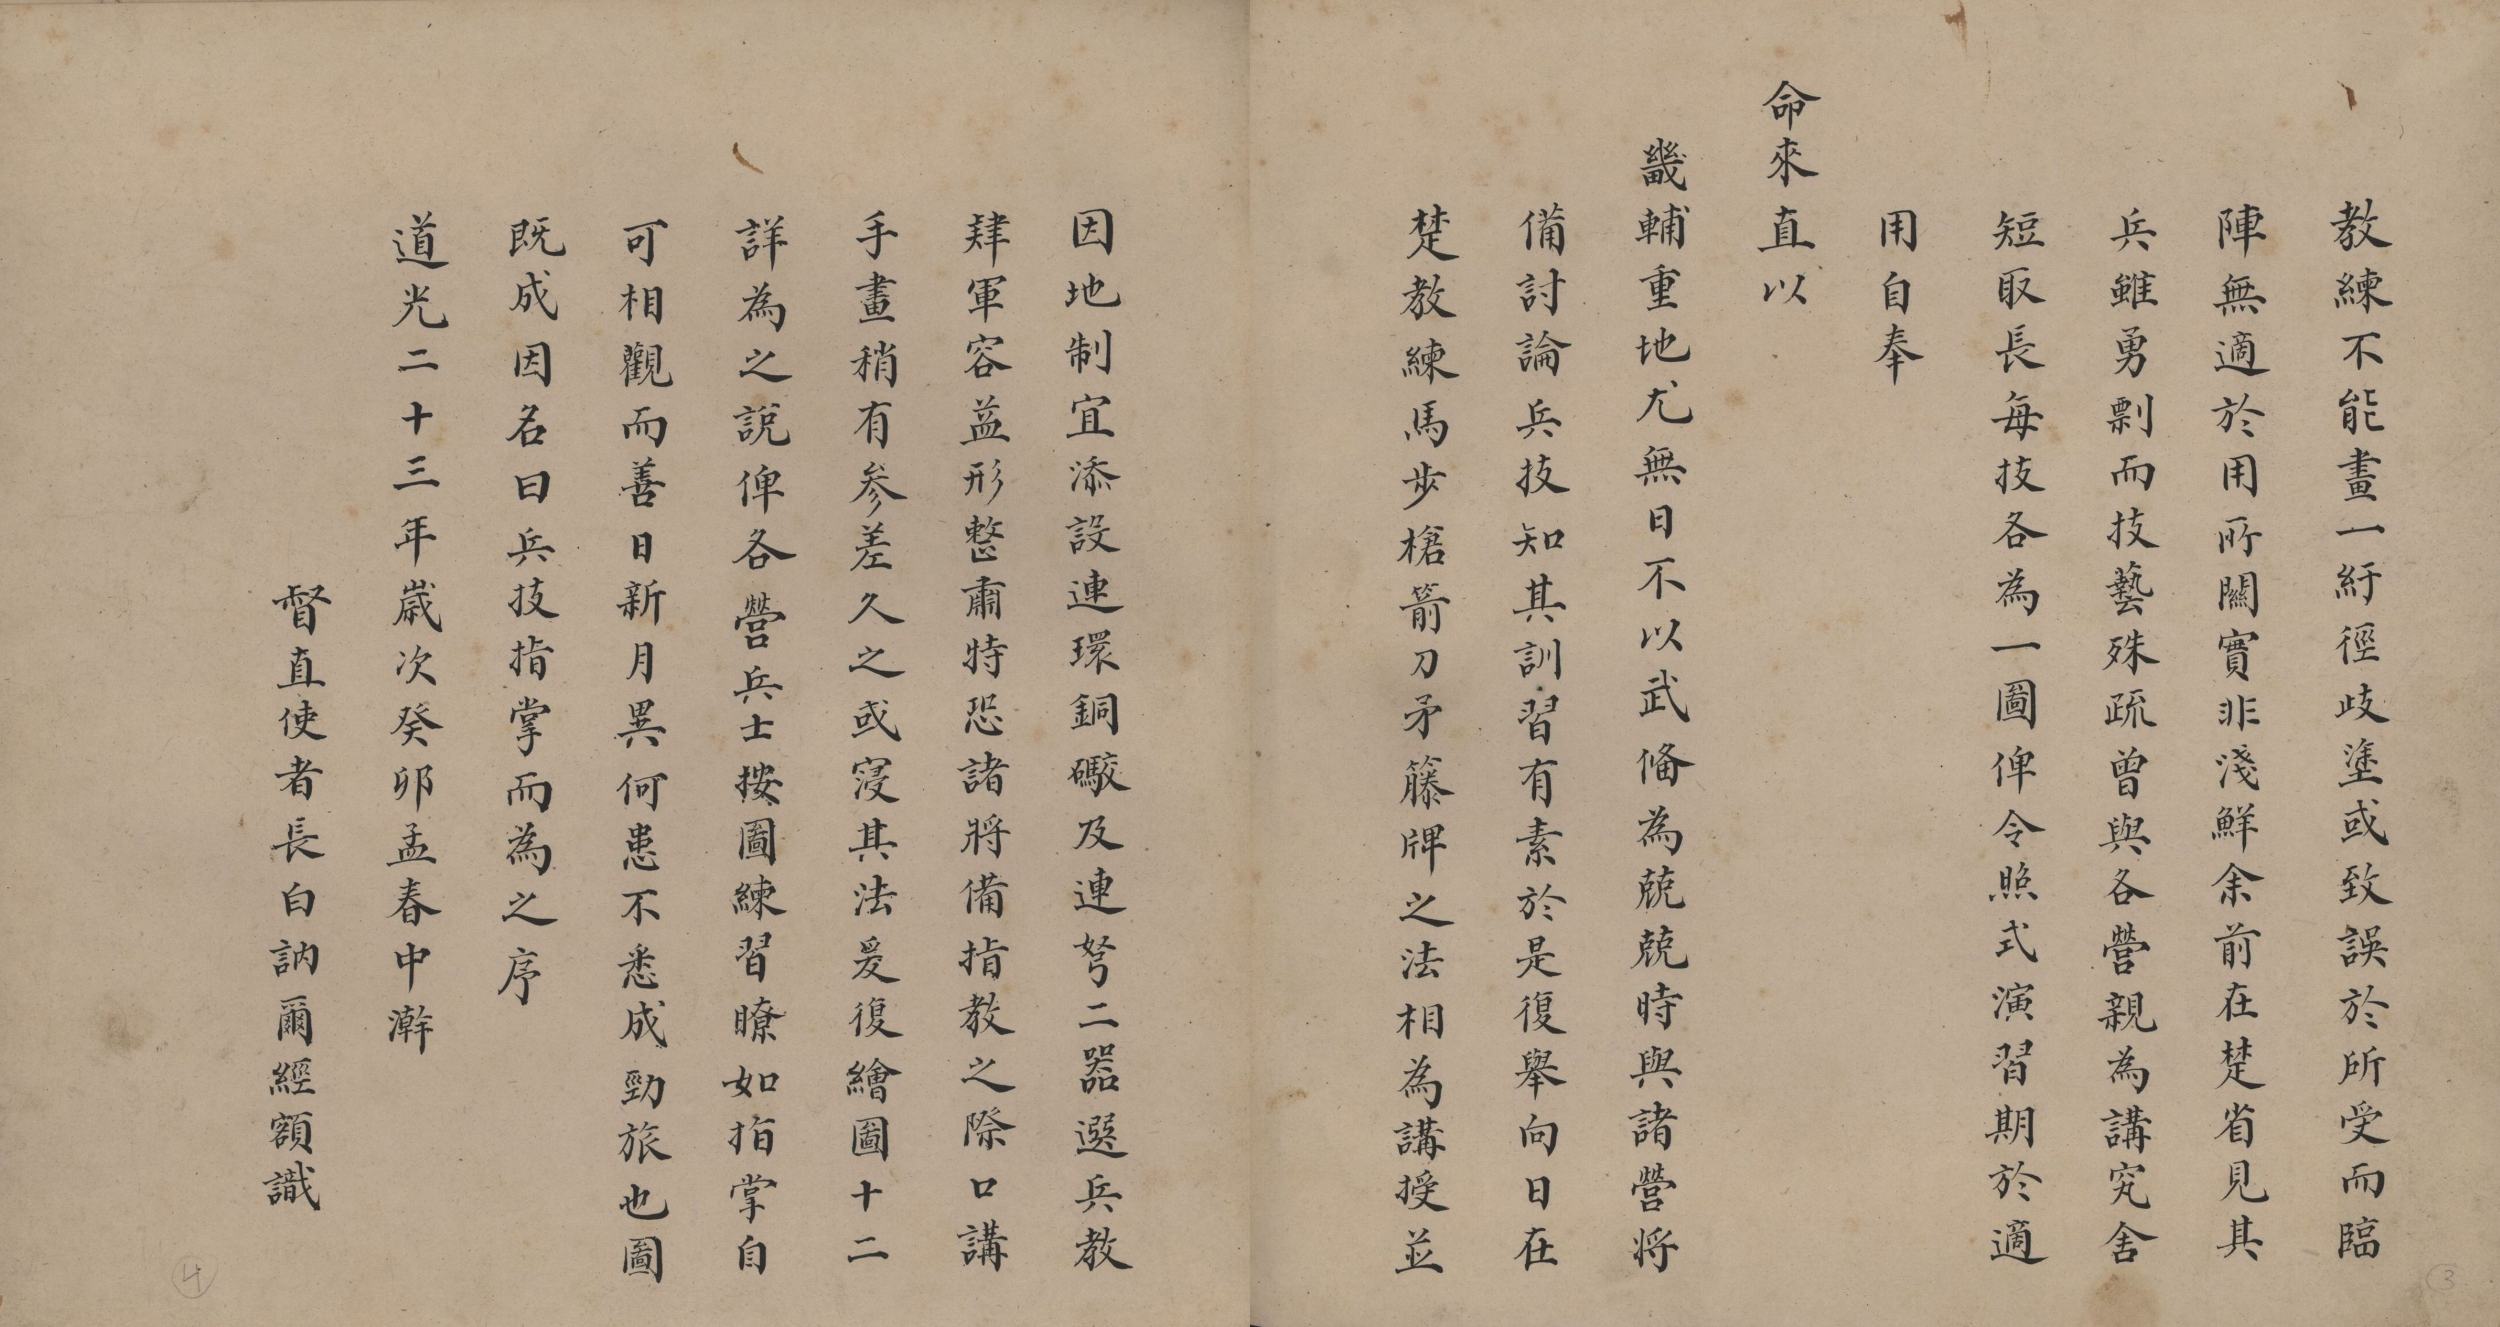 教練不能畫一紆徑歧塗或致誤於所受而臨
陣無適於用所關實非淺鮮余前在楚省見其
兵雖勇剽而技藝殊疏曾與各營親為講究舍
短取長每技各為一圖俾令照式演習期於適
用自奉
命來直以
畿輔重地尤無日不以武俻為兢兢時與諸營将
備討論兵技知其訓習有素於是復舉向日在
楚教練馬步槍箭刀矛籐牌之法相為講授並
因地制宜添設連環銅礮及連弩二器選兵教
肄軍容益形整肅特恐諸將備指教之際口講
手畫稍有参差久之或寖其法爰復繪圖十二
詳為之說俾各營兵士按圖練習瞭如指掌自
可相觀而善日新月異何患不悉成勁旅也圖
既成因名曰兵技指掌而為之序
道光二十三年歲次癸卯孟春中澣
督直使者長白訥爾經額識
3
4